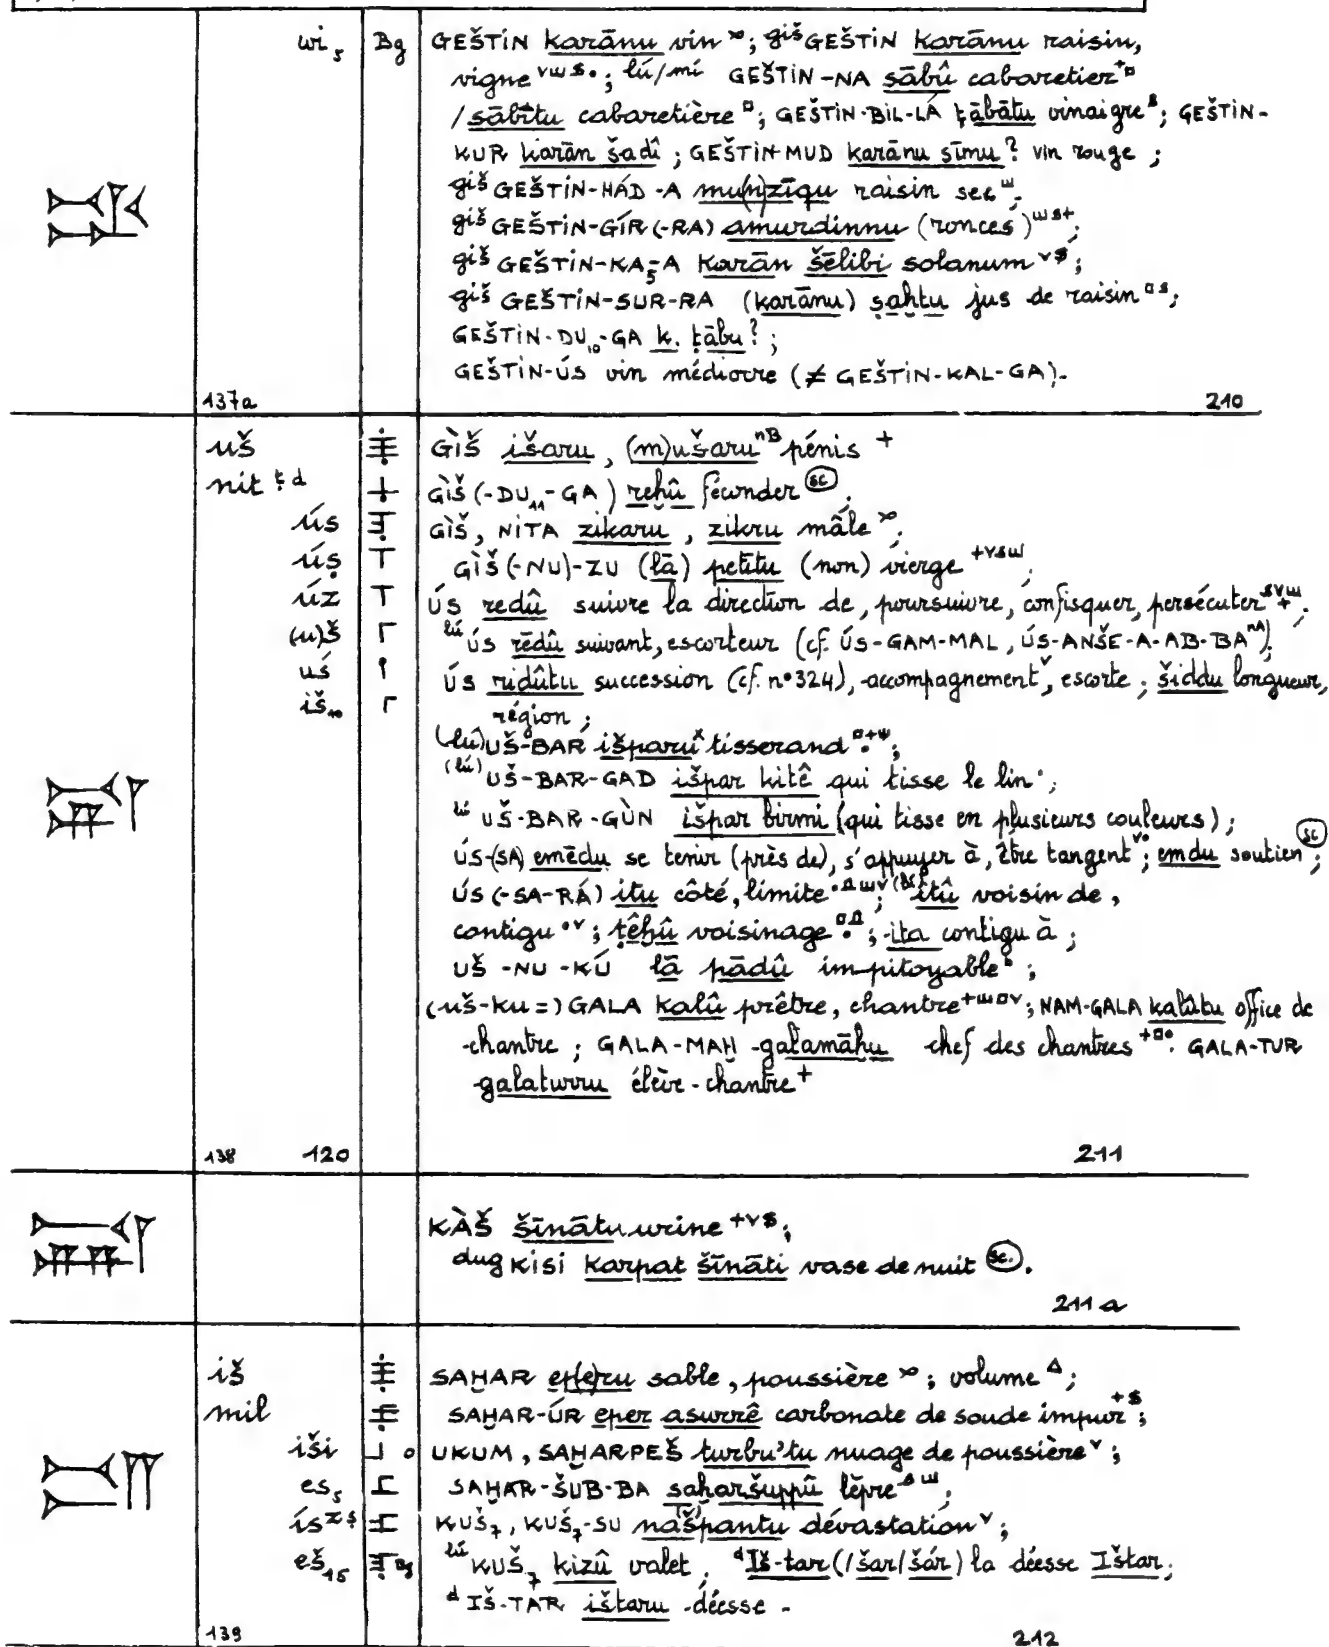 wi₅ Bg GEŠTIN karānu vin ; giš GEŠTIN karānu raisin,
vigne ; lú/mí GEŠTIN-NA sābû cabaretier
/ sābītu cabaretière ; GEŠTIN-BIL-LÁ ṭābātu vinaigre ; GEŠTIN-
KUR karān šadî ; GEŠTIN-MUD karānu sīmu? vin rouge ;
giš GEŠTIN-HÁD-A mu(n)zīqu raisin sec ;
giš GEŠTIN-GÍR(-RA) amurdinnu (ronces) ;
giš GEŠTIN-KA₅-A karān šēlibi solanum ;
giš GEŠTIN-SUR-RA (karānu) ṣaḫtu jus de raisin ;
GEŠTIN-DU₁₀-GA k. ṭābu? ;
GEŠTIN-ÚS vin médiocre (≠ GEŠTIN-KAL-GA).
137a 210
uš GÌŠ išaru, (m)ušaru pénis +
nit ṭ d GÌŠ(-DU₁₁-GA) reḫû féconder (sc).
ús GÌŠ, NITA zikaru, zikru mâle ;
úṣ GÌŠ(-NU)-ZU (lā) petītu (non) vierge ;
úz ÚS redû suivre la direction de, poursuivre, confisquer, persécuter ;
(u)š lú ÚS rēdû suivant, escorteur (cf. ÚS-GAM-MAL, ÚS-ANŠE-A-AB-BA) ;
uś ÚS ridûtu succession (cf. n°324), accompagnement, escorte ; šiddu longueur,
iš₁₀ région ;
(lú) UŠ-BAR išparu tisserand ;
(lú) UŠ-BAR-GAD išpar kitê qui tisse le lin ;
lú UŠ-BAR-GÙN išpar birmi (qui tisse en plusieurs couleurs) ;
ÚS-(SA) emēdu se tenir (près de), s'appuyer à, être tangent ; emdu soutien (sc) ;
ÚS(-SA-RÁ) itu côté, limite ; itû voisin de,
contigu ; ṭêḫû voisinage ; ita contigu à ;
UŠ-NU-KÚ lā pādû impitoyable ;
(uš-ku =) GALA kalû prêtre, chantre ; NAM-GALA kalûtu office de
chantre ; GALA-MAḪ galamāḫu chef des chantres . GALA-TUR
galaturru élève-chantre +
138 120 211
KÀŠ šīnātu urine ;
dug KISI karpat šīnāti vase de nuit (sc.).
211 a
iš SAḪAR ep(e)ru sable, poussière ; volume ;
mil SAḪAR-ÚR eper asurrê carbonate de soude impur ;
iši UKUM, SAḪARPEŠ turbu'tu nuage de poussière ;
es₅ SAḪAR-ŠUB-BA saḫaršuppû lèpre ;
ís z ṣ KUŠ₇, KUŠ₇-SU našpantu dévastation ;
eš₁₅ Bg lú KUŠ₇ kizû valet ; d Iš-tar (/šar/šár) la déesse Ištar ;
d IŠ-TAR ištaru déesse -
139 212